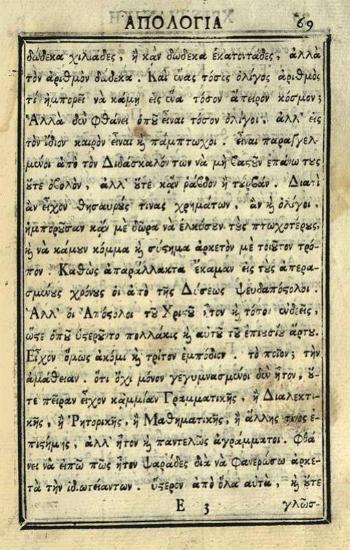 ΑΠΟΛΟΓΙΑ 69
δώδεκα χιλιάδες, ἢ κἂν δώδεκα ἑκατοντάδες, ἀλλὰ
τὸν ἀριθμὸν δώδεκα. Καὶ ἕνας τόσος ὀλίγος ἀριθμὸς
τί ἠμπορεῖ νὰ κάμῃ εἰς ἕνα τόσον ἄπειρον κόσμον;
Ἀλλὰ δὲν φθάνει ὁποῦ εἶναι τόσον ὀλίγοι. ἀλλ' εἰς
τὸν ἴδιον καιρὸν εἶναι ἢ πάμπτωχοι. εἶναι παραγγελ-
μένοι ἀπὸ τὸν Διδάσκαλόν των νὰ μὴ βαστοῦν ἐπάνω τους
οὔτε ὀβολὸν, ἀλλ' οὔτε κἂν ῥάβδον ἢ ταρβᾶν. Διατὶ
ἂν εἶχον θησαυροὺς τινας χρημάτων, ἂν ἢ ὀλίγοι,
ἠμποροῦσαν κἂν μὲ δῶρα νὰ ἑλκύσουν τοὺς πτωχοτέρους,
ἢ νὰ κάμουν κόμμα ἢ σύστημα ἀρκετὸν μὲ τοιοῦτον τρό-
πον. Καθὼς ἀπαράλλακτα ἔκαμαν εἰς τοὺς ἀπερα-
σμένους χρόνους οἱ ἀπὸ τῆς Δύσεως Ψευδαπόστολοι.
Ἀλλ' οἱ Ἀπόστολοι τοῦ Χριστοῦ ἦτον ἢ τόποι ἐνδεεῖς,
ὥστε ὁποῦ ὑστεροῦντο πολλάκις ἢ αὐτοῦ τοῦ ἐπιουσίου ἄρτου.
Εἶχον ὅμως ἀκόμι ἢ τρίτον ἐμπόδιον. τὸ ποῖον; τὴν
ἀμάθειαν. ὅτι ὄχι μόνον γεγυμνασμένοι δὲν ἦτον, οὔ-
τε πεῖραν εἶχον καμμίαν Γραμματικῆς, ἢ Διαλεκτι-
κῆς, ἢ Ῥητορικῆς, ἢ Μαθηματικῆς, ἢ ἄλλης τινὸς ἐπι-
στήμης, ἀλλ' ἦτον ἢ παντελῶς ἀγράμματοι. Φθά-
νει νὰ εἰπῶ πῶς ἦτον Ψαράδες διὰ νὰ φανερώσω ἀρκε-
τὰ τὴν ἰδιωτείαν των. ὕστερον ἀπὸ ὅλα αὐτὰ, ἢ οὔτε
Ε 3 γλῶσ-